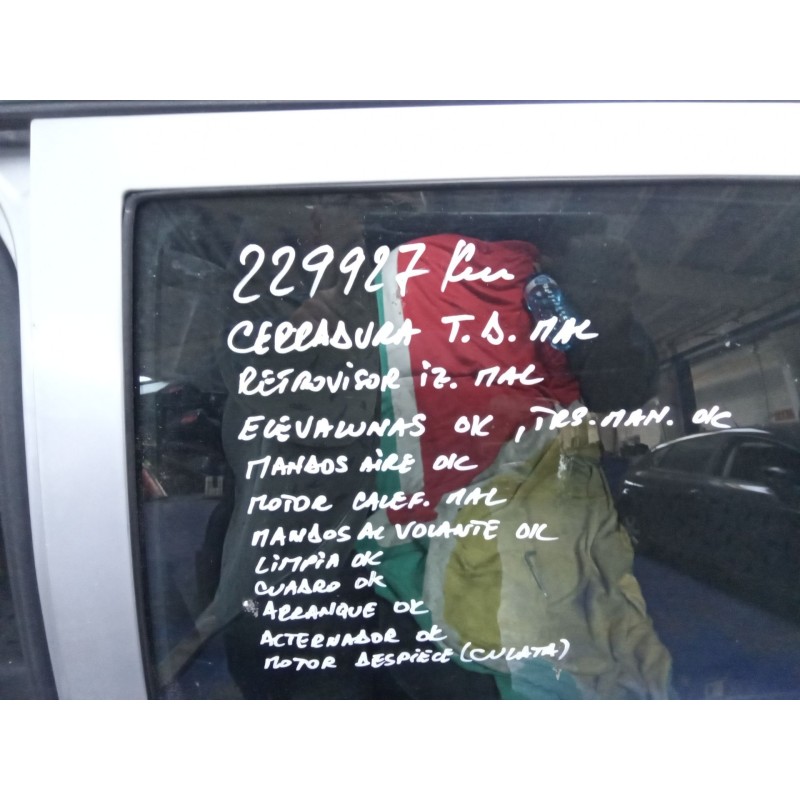 229927 Km
CERRADURA T.D. MAL
RETROVISOR IZ. MAL
ELEVALUNAS OK, TRS. MAN. OK
MANDOS AIRE OK
MOTOR CALEF. MAL
MANDOS AL VOLANTE OK
LIMPIA OK
CUADRO OK
ARRANQUE OK
ALTERNADOR OK
MOTOR DESPIECE (CULATA)